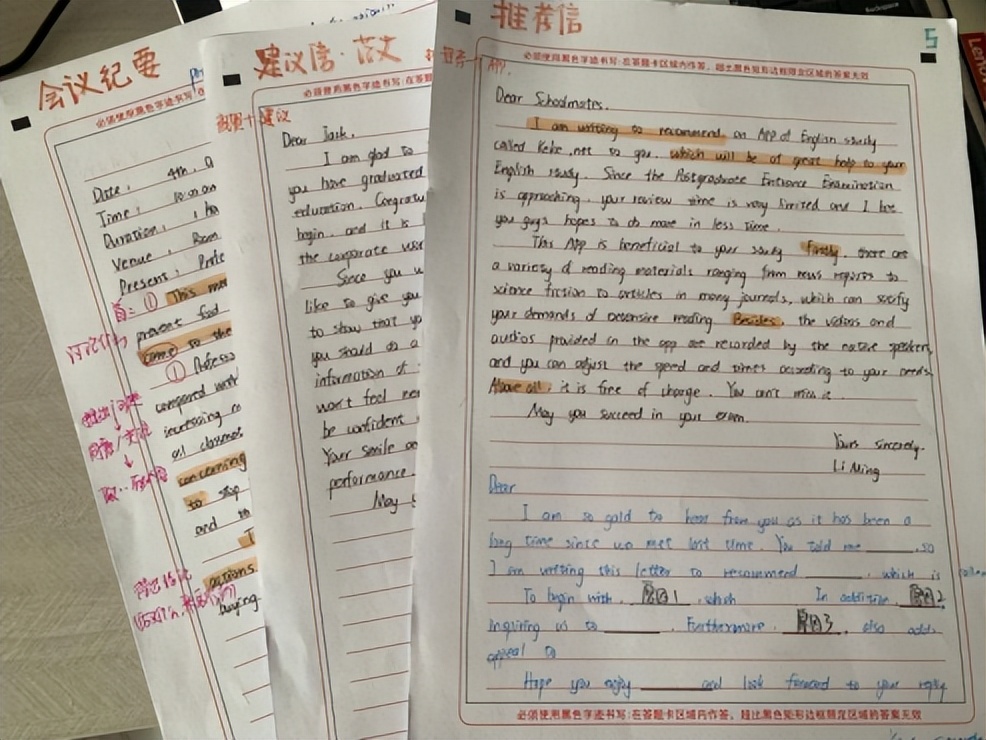 会议纪要
Date: 4th,
Time:
Duration:
Venue: Room
Present:
首: ① This
prevent food
came to the
①
compared with
increasing
concerning
to stop
and
actions.
buying
建议信·范文
祝贺+建议
Dear Jack,
I am glad to
you have graduated
education. Congratu
begin. and it is
the corporate
Since you
like to give you
to show that you
you should do a
information of
won't feel
be confident
Your smile
performance.
May
推荐信
5
推荐一 APP.
必须使用黑色字迹书写:在答题卡区域内作答，超出黑色矩形边框限定区域的答案无效
Dear Schoolmates,
I am writing to recommend an App of English study
called Keke.net to you, which will be of great help to your
English study. Since the Postgraduate Entrance Examination
is approaching, your review time is very limited and I bet
you guys hopes to do more in less time.
This App is beneficial to your study. Firstly, there are
a variety of reading materials ranging from news reports to
science fiction to articles in many journals, which can satisfy
your demands of extensive reading. Besides, the videos and
audios provided in the app are recorded by the native speakers,
and you can adjust the speed and times according to your needs.
Above all, it is free of charge. You can't miss it.
May you succeed in your exam.
Yours sincerely,
Li Ming
Dear
I am so gald to hear from you as it has been a
long time since we met last time. You told me ______, so
I am writing this letter to recommend ______, which is
To begin with, 原因1, which In addition, 原因2
inquiring us to ______. Furthermore, 原因3, also adds
appeal to
Hope you enjoy ______ and look forward to your reply
必须使用黑色字迹书写:在答题卡区域内作答，超出黑色矩形边框限定区域的答案无效